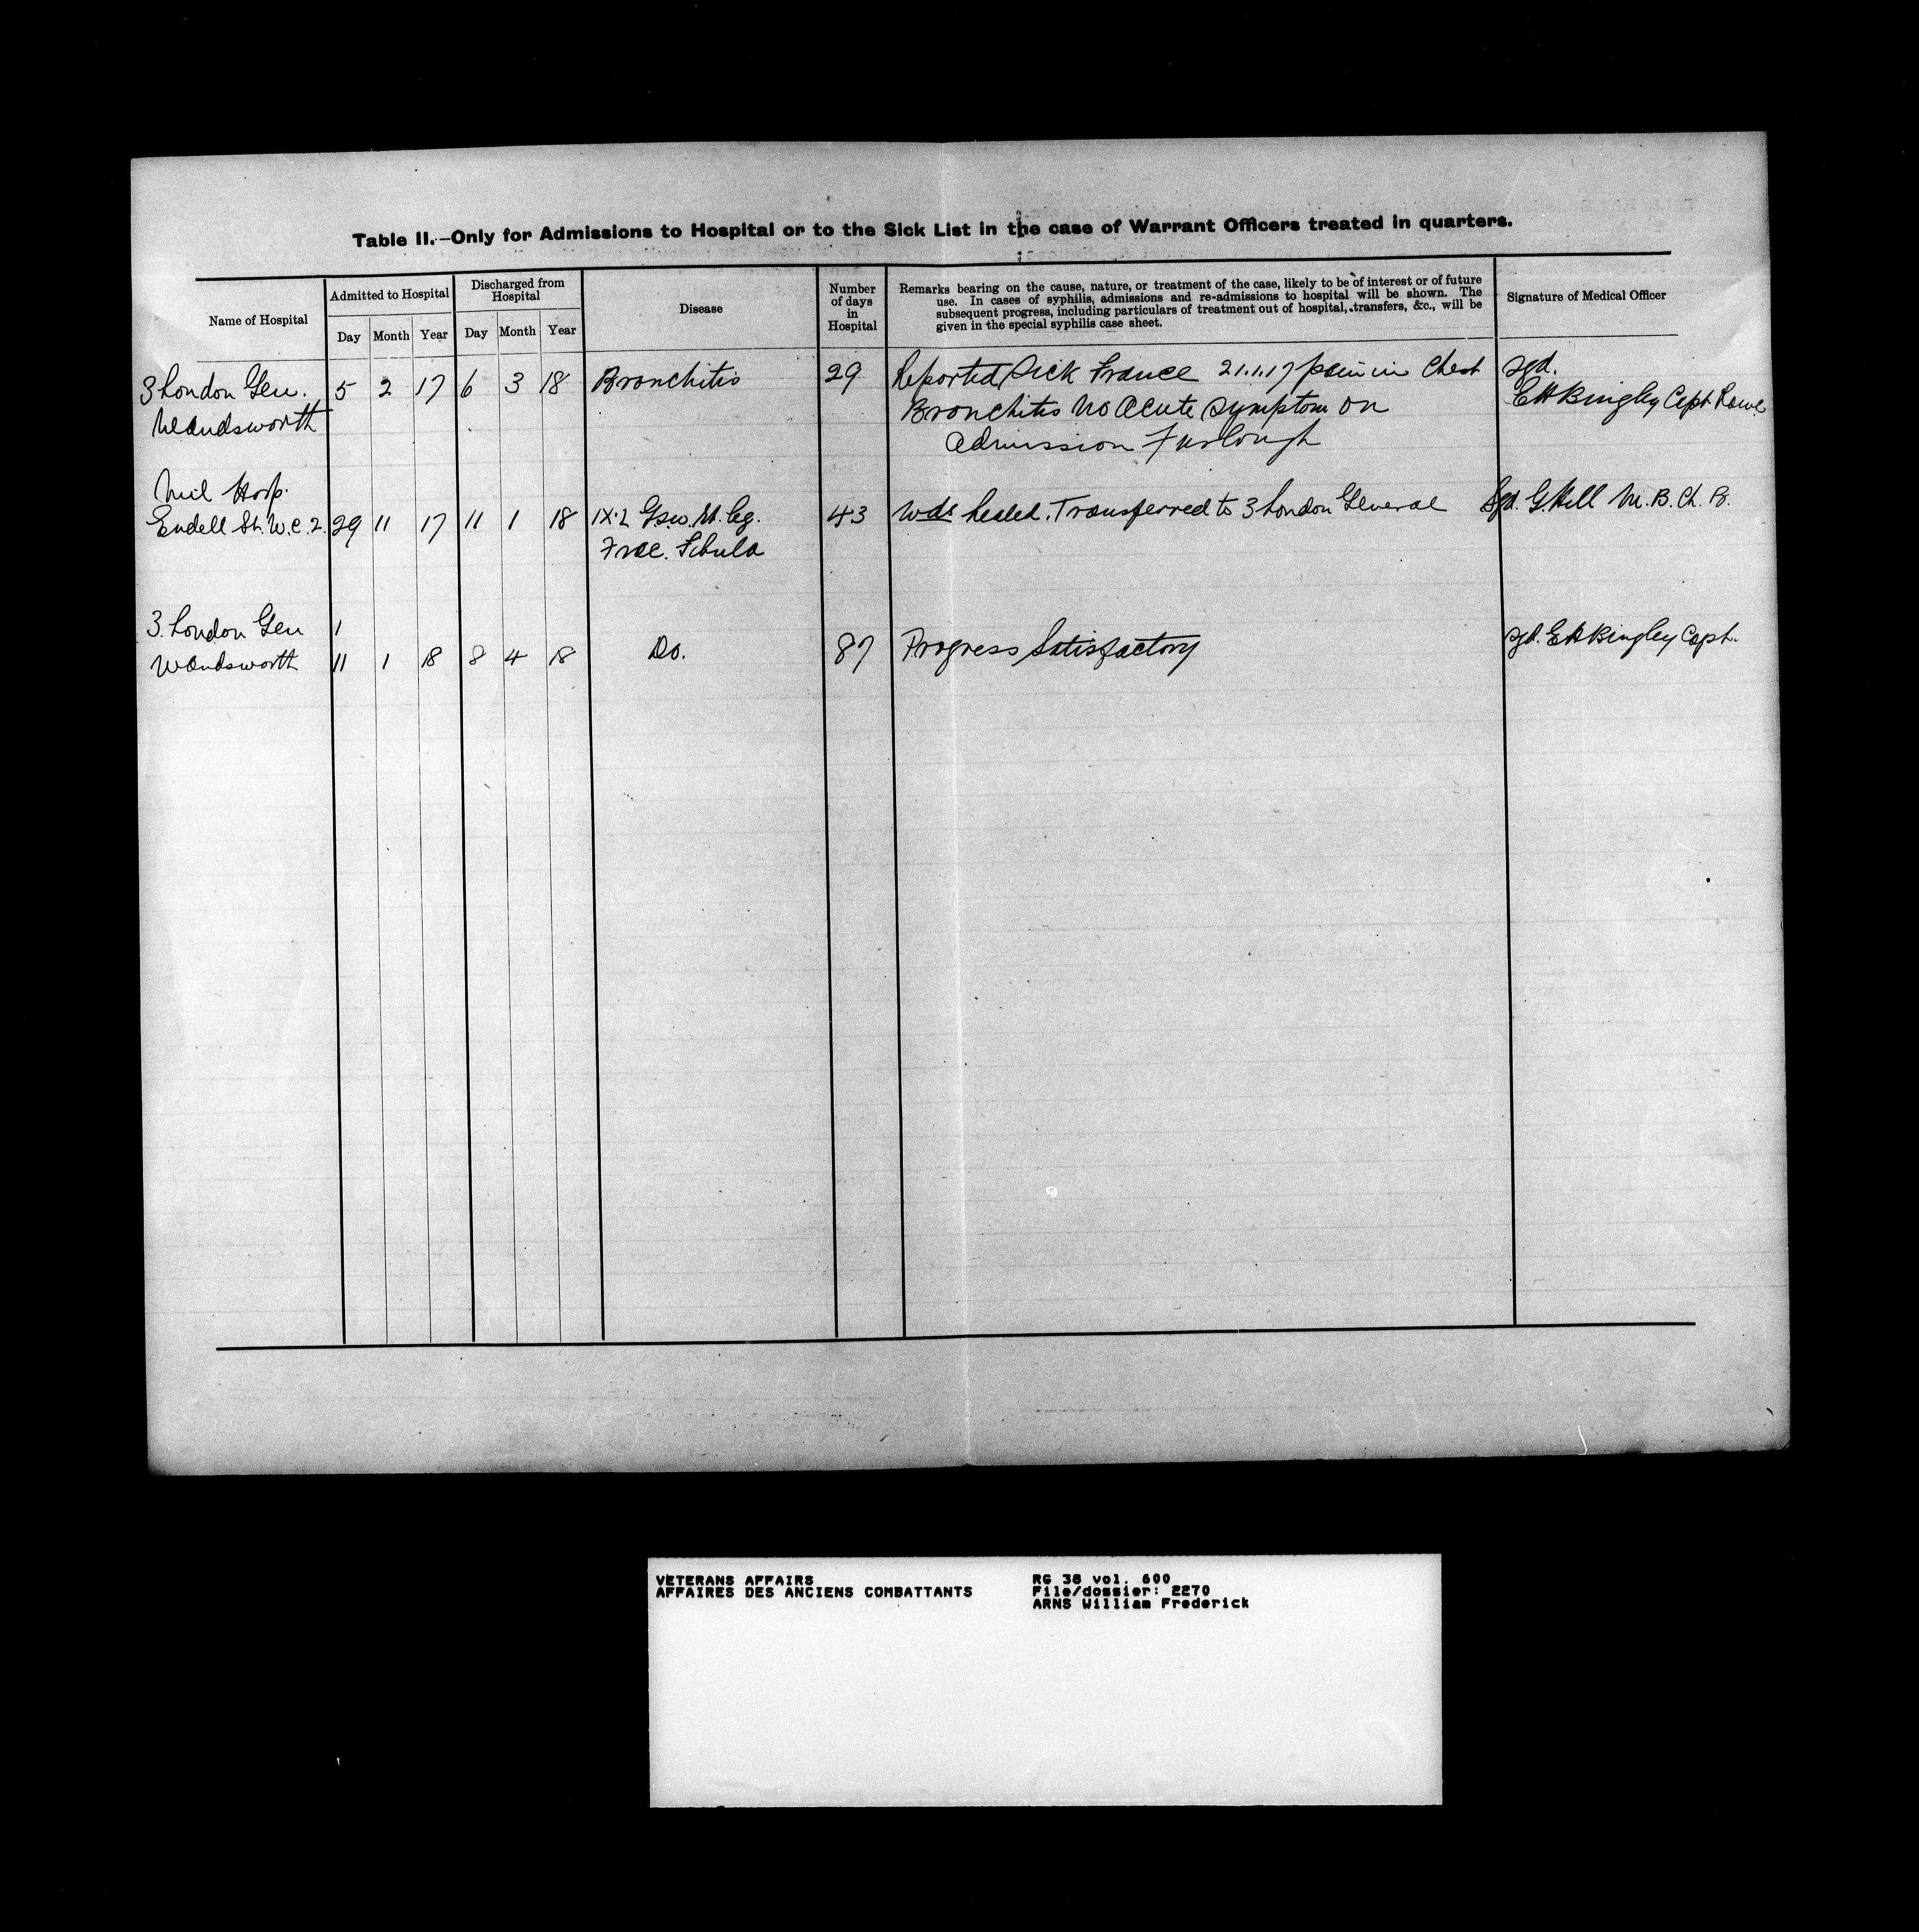 Table II.—Only for Admissions to Hospital or to the Sick List in the case of Warrant Officers treated in quarters.
Name of Hospital
Admitted to Hospital
Day Month Year
Discharged from
Hospital
Day Month Year
Disease
Number
of days
in
Hospital
Remarks bearing on the cause, nature, or treatment of the case, likely to be of interest or of future
use. In cases of syphilis, admissions and re-admissions to hospital will be shown. The
subsequent progress, including particulars of treatment out of hospital, transfers, &c., will be
given in the special syphilis case sheet.
Signature of Medical Officer
3 London Gen. 5 2 17 6 3 18 Bronchitis 29 Reported Sick France 21.1.17 pain in Chest sgd.
Wandsworth Bronchitis No Acute Symptom on EH Bingley Capt
admission Furlough
Mil Hosp.
Endell St. W.C.2. 29 11 17 11 1 18 IX.2 Gsw. Rt. leg. 43 Wds healed. Transferred to 3 London General Sgd. G. Hill M.B. Ch. B.
Frac. Fibula
3. London Gen 1
Wandsworth 11 1 18 8 4 18 Do. 87 Progress Satisfactory sgd. EH Bingley Capt.
VETERANS AFFAIRS RG 38 vol. 600
AFFAIRES DES ANCIENS COMBATTANTS File/dossier: 2270
ARNS William Frederick